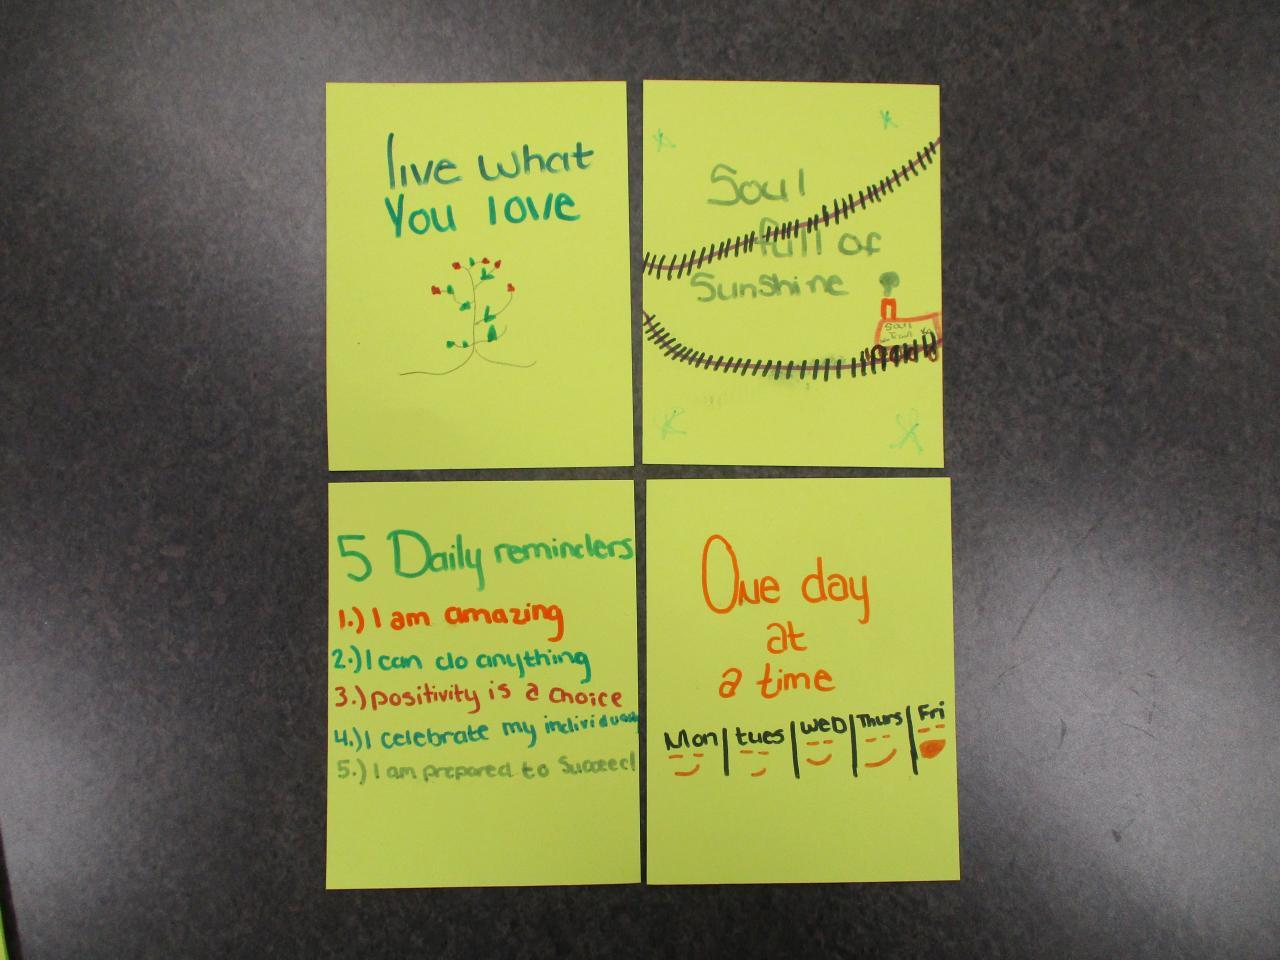 live what
You love
Soul
full of
Sunshine
Soul
5 Daily reminders
1.) I am amazing
2.) I can do anything
3.) positivity is a choice
4.) I celebrate my
5.) I am prepared to Succeed
One day
at
a time
Mon tues WED Thurs Fri